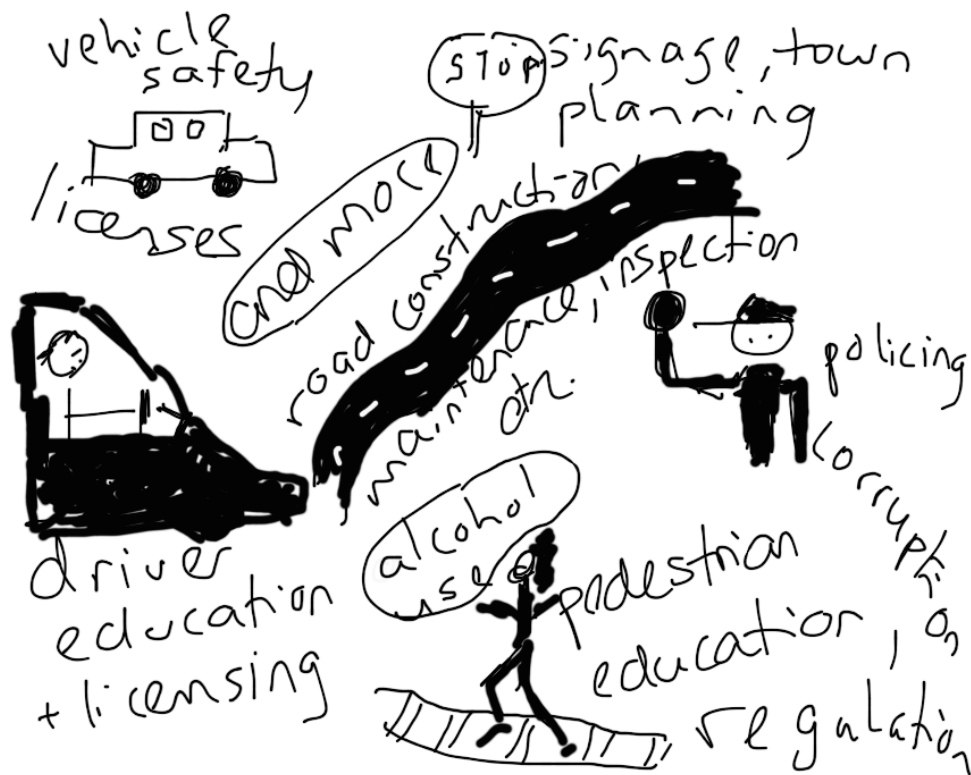 vehicle
safety
licenses
STOP
signage, town
planning
and more
road construction
maintenance, inspection
etc.
policing
corruption
driver
education
+ licensing
alcohol
use
pedestrian
education,
regulation